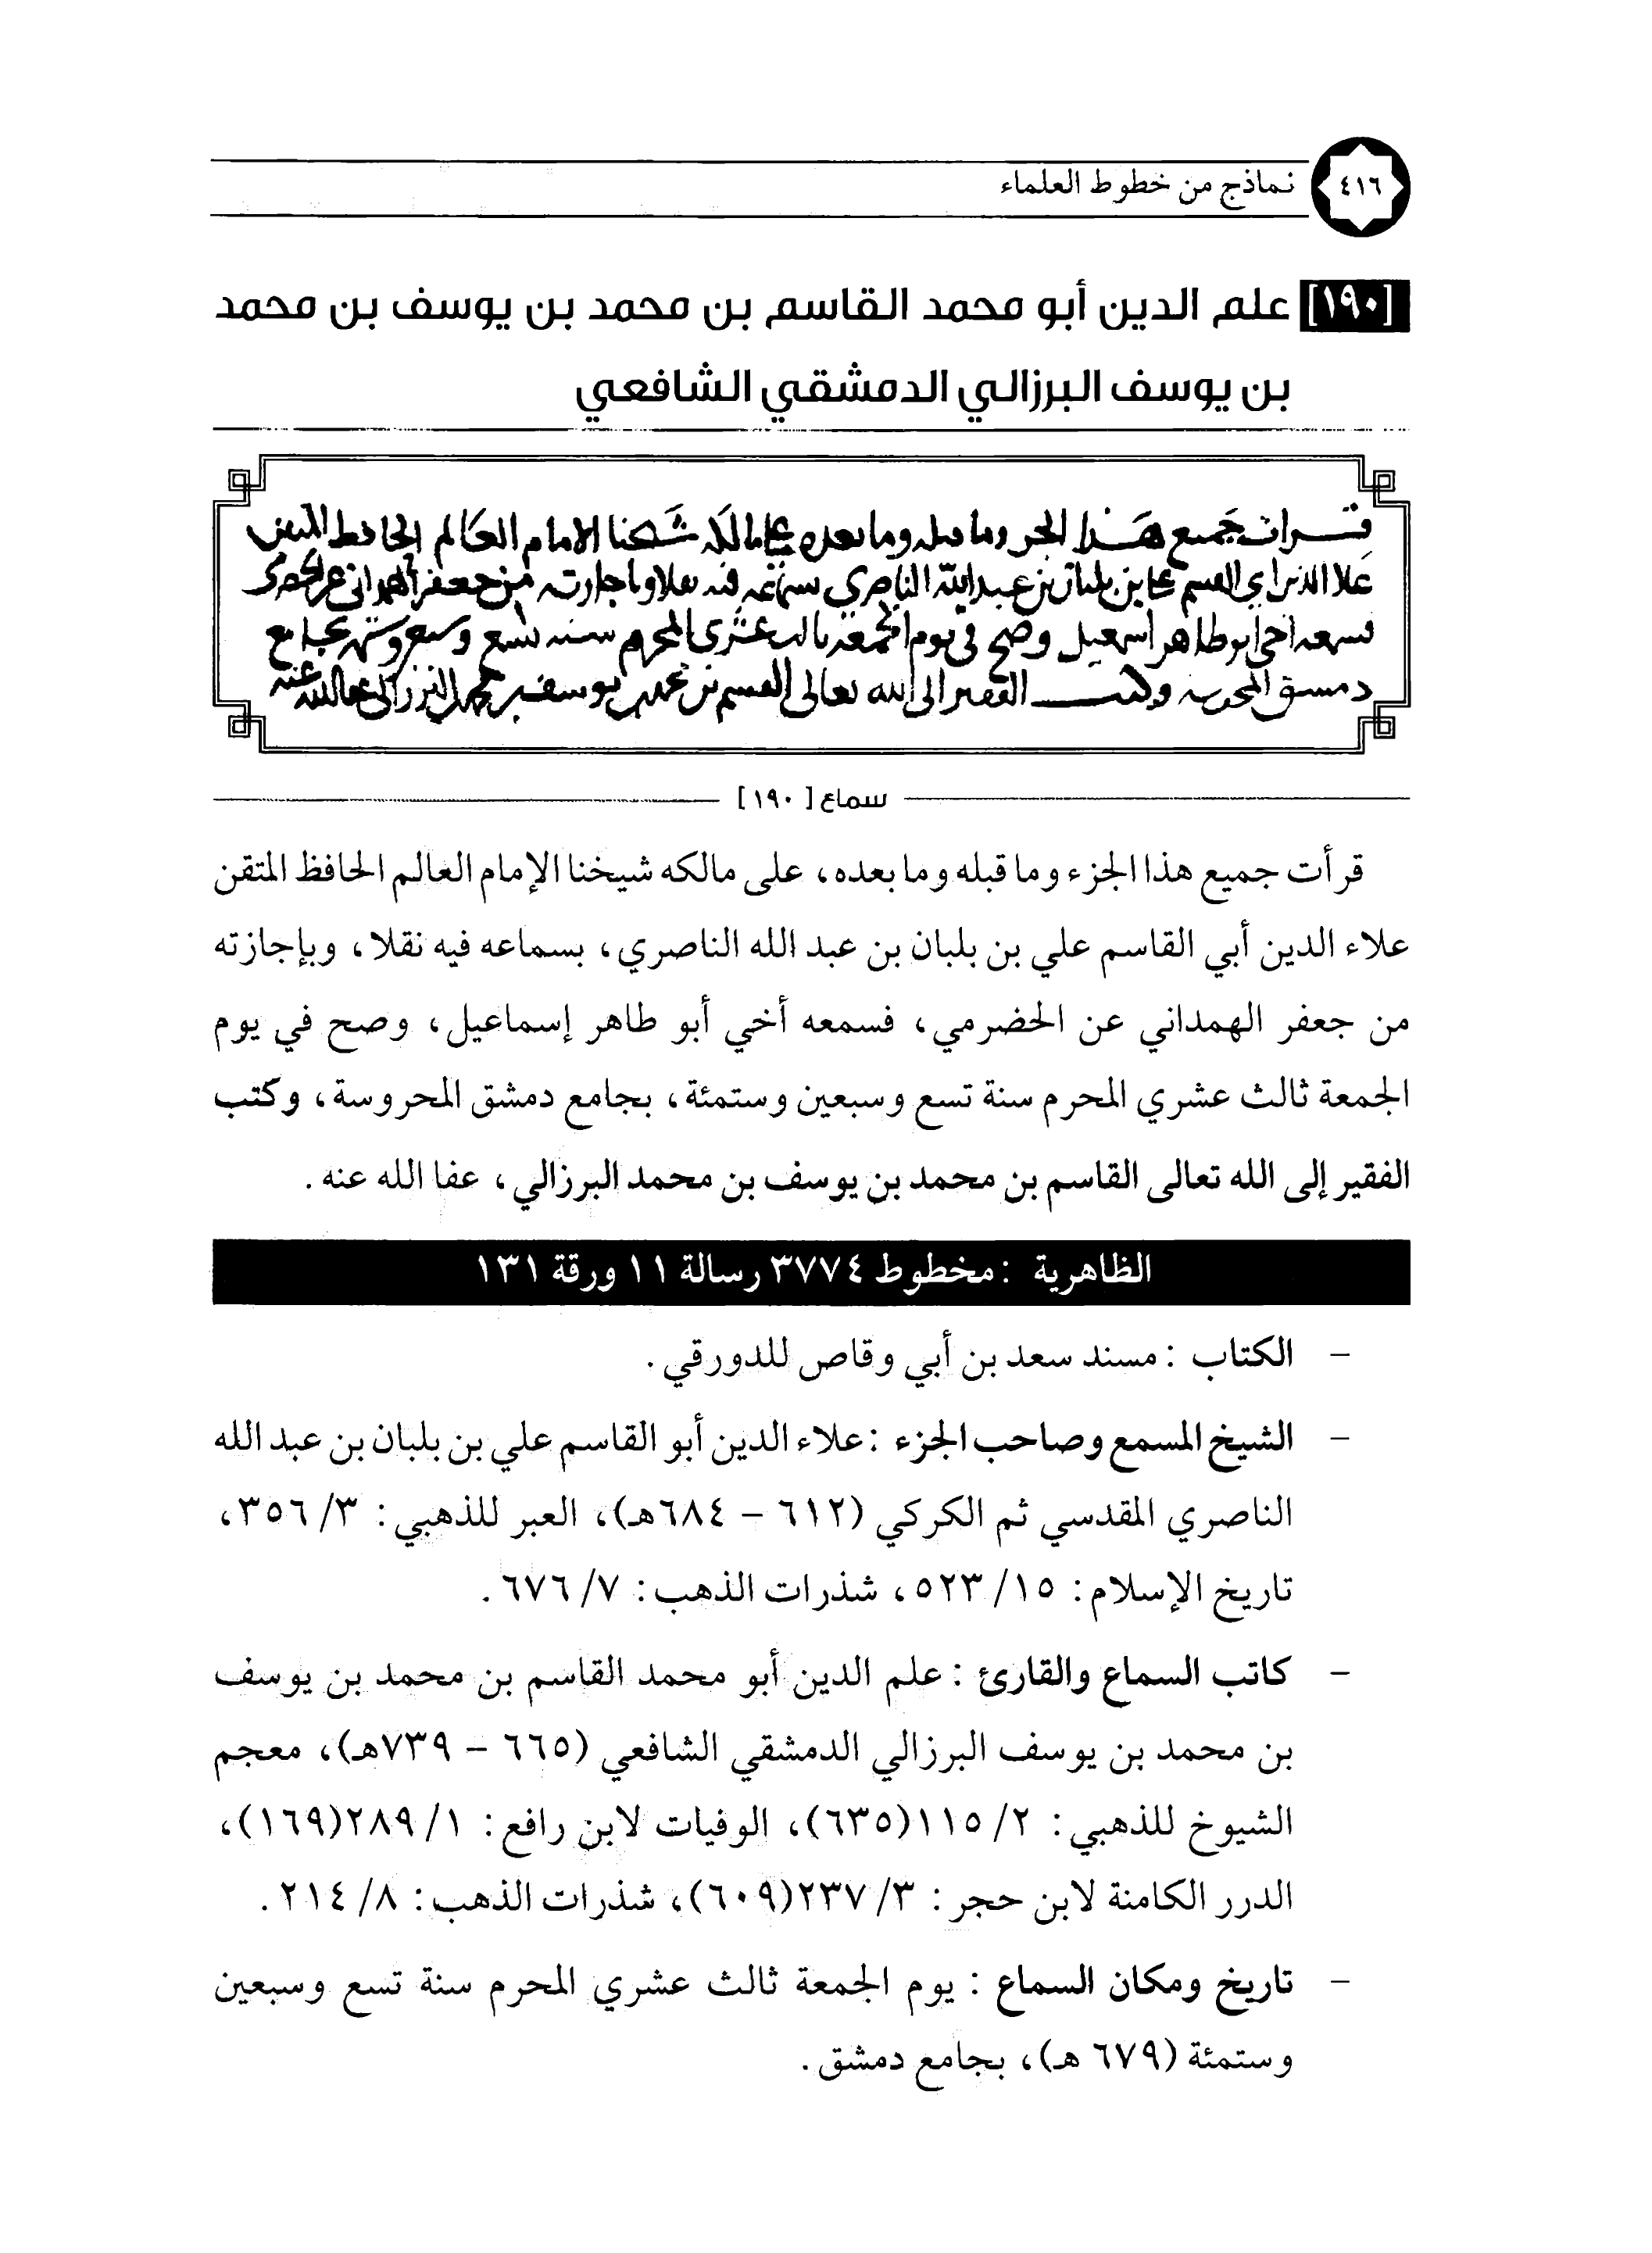 ٤١٦
نماذج من خطوط العلماء
[١٩٠] علم الدين أبو محمد القاسم بن محمد بن يوسف بن محمد
بن يوسف البرزالي الدمشقي الشافعي
قرات جميع هذا الجز وما قبله وما بعده على مالكه شيخنا الامام العالم الحافظ المتقن
علا الدين ابي القسم علي بن بلبان بن عبد الله الناصري سماعه فيه نقلا وباجازته من جعفر الهمداني عن الحضرمي
فسمعه اخي ابو طاهر اسمعيل وصح في يوم الجمعة ثالث عشري المحرم سنه تسع وسبعين وستمية بجامع
دمشق المحروسه وكتب الفقير الى الله تعالى القسم بن محمد بن يوسف بن محمد البرزالي عفا الله عنه
سماع [ ١٩٠ ]
قرأت جميع هذا الجزء وما قبله وما بعده، على مالكه شيخنا الإمام العالم الحافظ المتقن
علاء الدين أبي القاسم علي بن بلبان بن عبد الله الناصري، بسماعه فيه نقلا، وبإجازته
من جعفر الهمداني عن الحضرمي، فسمعه أخي أبو طاهر إسماعيل، وصح في يوم
الجمعة ثالث عشري المحرم سنة تسع وسبعين وستمئة، بجامع دمشق المحروسة، وكتب
الفقير إلى الله تعالى القاسم بن محمد بن يوسف بن محمد البرزالي، عفا الله عنه.
الظاهرية : مخطوط ٣٧٧٤ رسالة ١١ ورقة ١٣١
- الكتاب : مسند سعد بن أبي وقاص للدورقي.
- الشيخ المسمع وصاحب الجزء : علاء الدين أبو القاسم علي بن بلبان بن عبد الله
الناصري المقدسي ثم الكركي (٦١٢ - ٦٨٤هـ)، العبر للذهبي: ٣/ ٣٥٦،
تاريخ الإسلام: ١٥/ ٥٢٣، شذرات الذهب: ٧/ ٦٧٦.
- كاتب السماع والقارئ : علم الدين أبو محمد القاسم بن محمد بن يوسف
بن محمد بن يوسف البرزالي الدمشقي الشافعي (٦٦٥ - ٧٣٩هـ)، معجم
الشيوخ للذهبي: ٢/ ١١٥(٦٣٥)، الوفيات لابن رافع: ١/ ٢٨٩(١٦٩)،
الدرر الكامنة لابن حجر: ٣/ ٢٣٧(٦٠٩)، شذرات الذهب: ٨/ ٢١٤.
- تاريخ ومكان السماع : يوم الجمعة ثالث عشري المحرم سنة تسع وسبعين
وستمئة (٦٧٩ هـ)، بجامع دمشق.